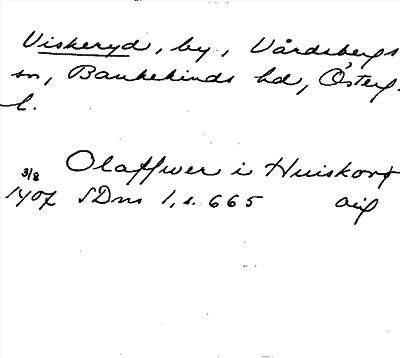 Viskeryd, by, Vårdsbergs
sn, Bankekinds hd, Österg.
l.
Olaffwer i Huiskoryt
3/8
1407 SDns 1, s. 665